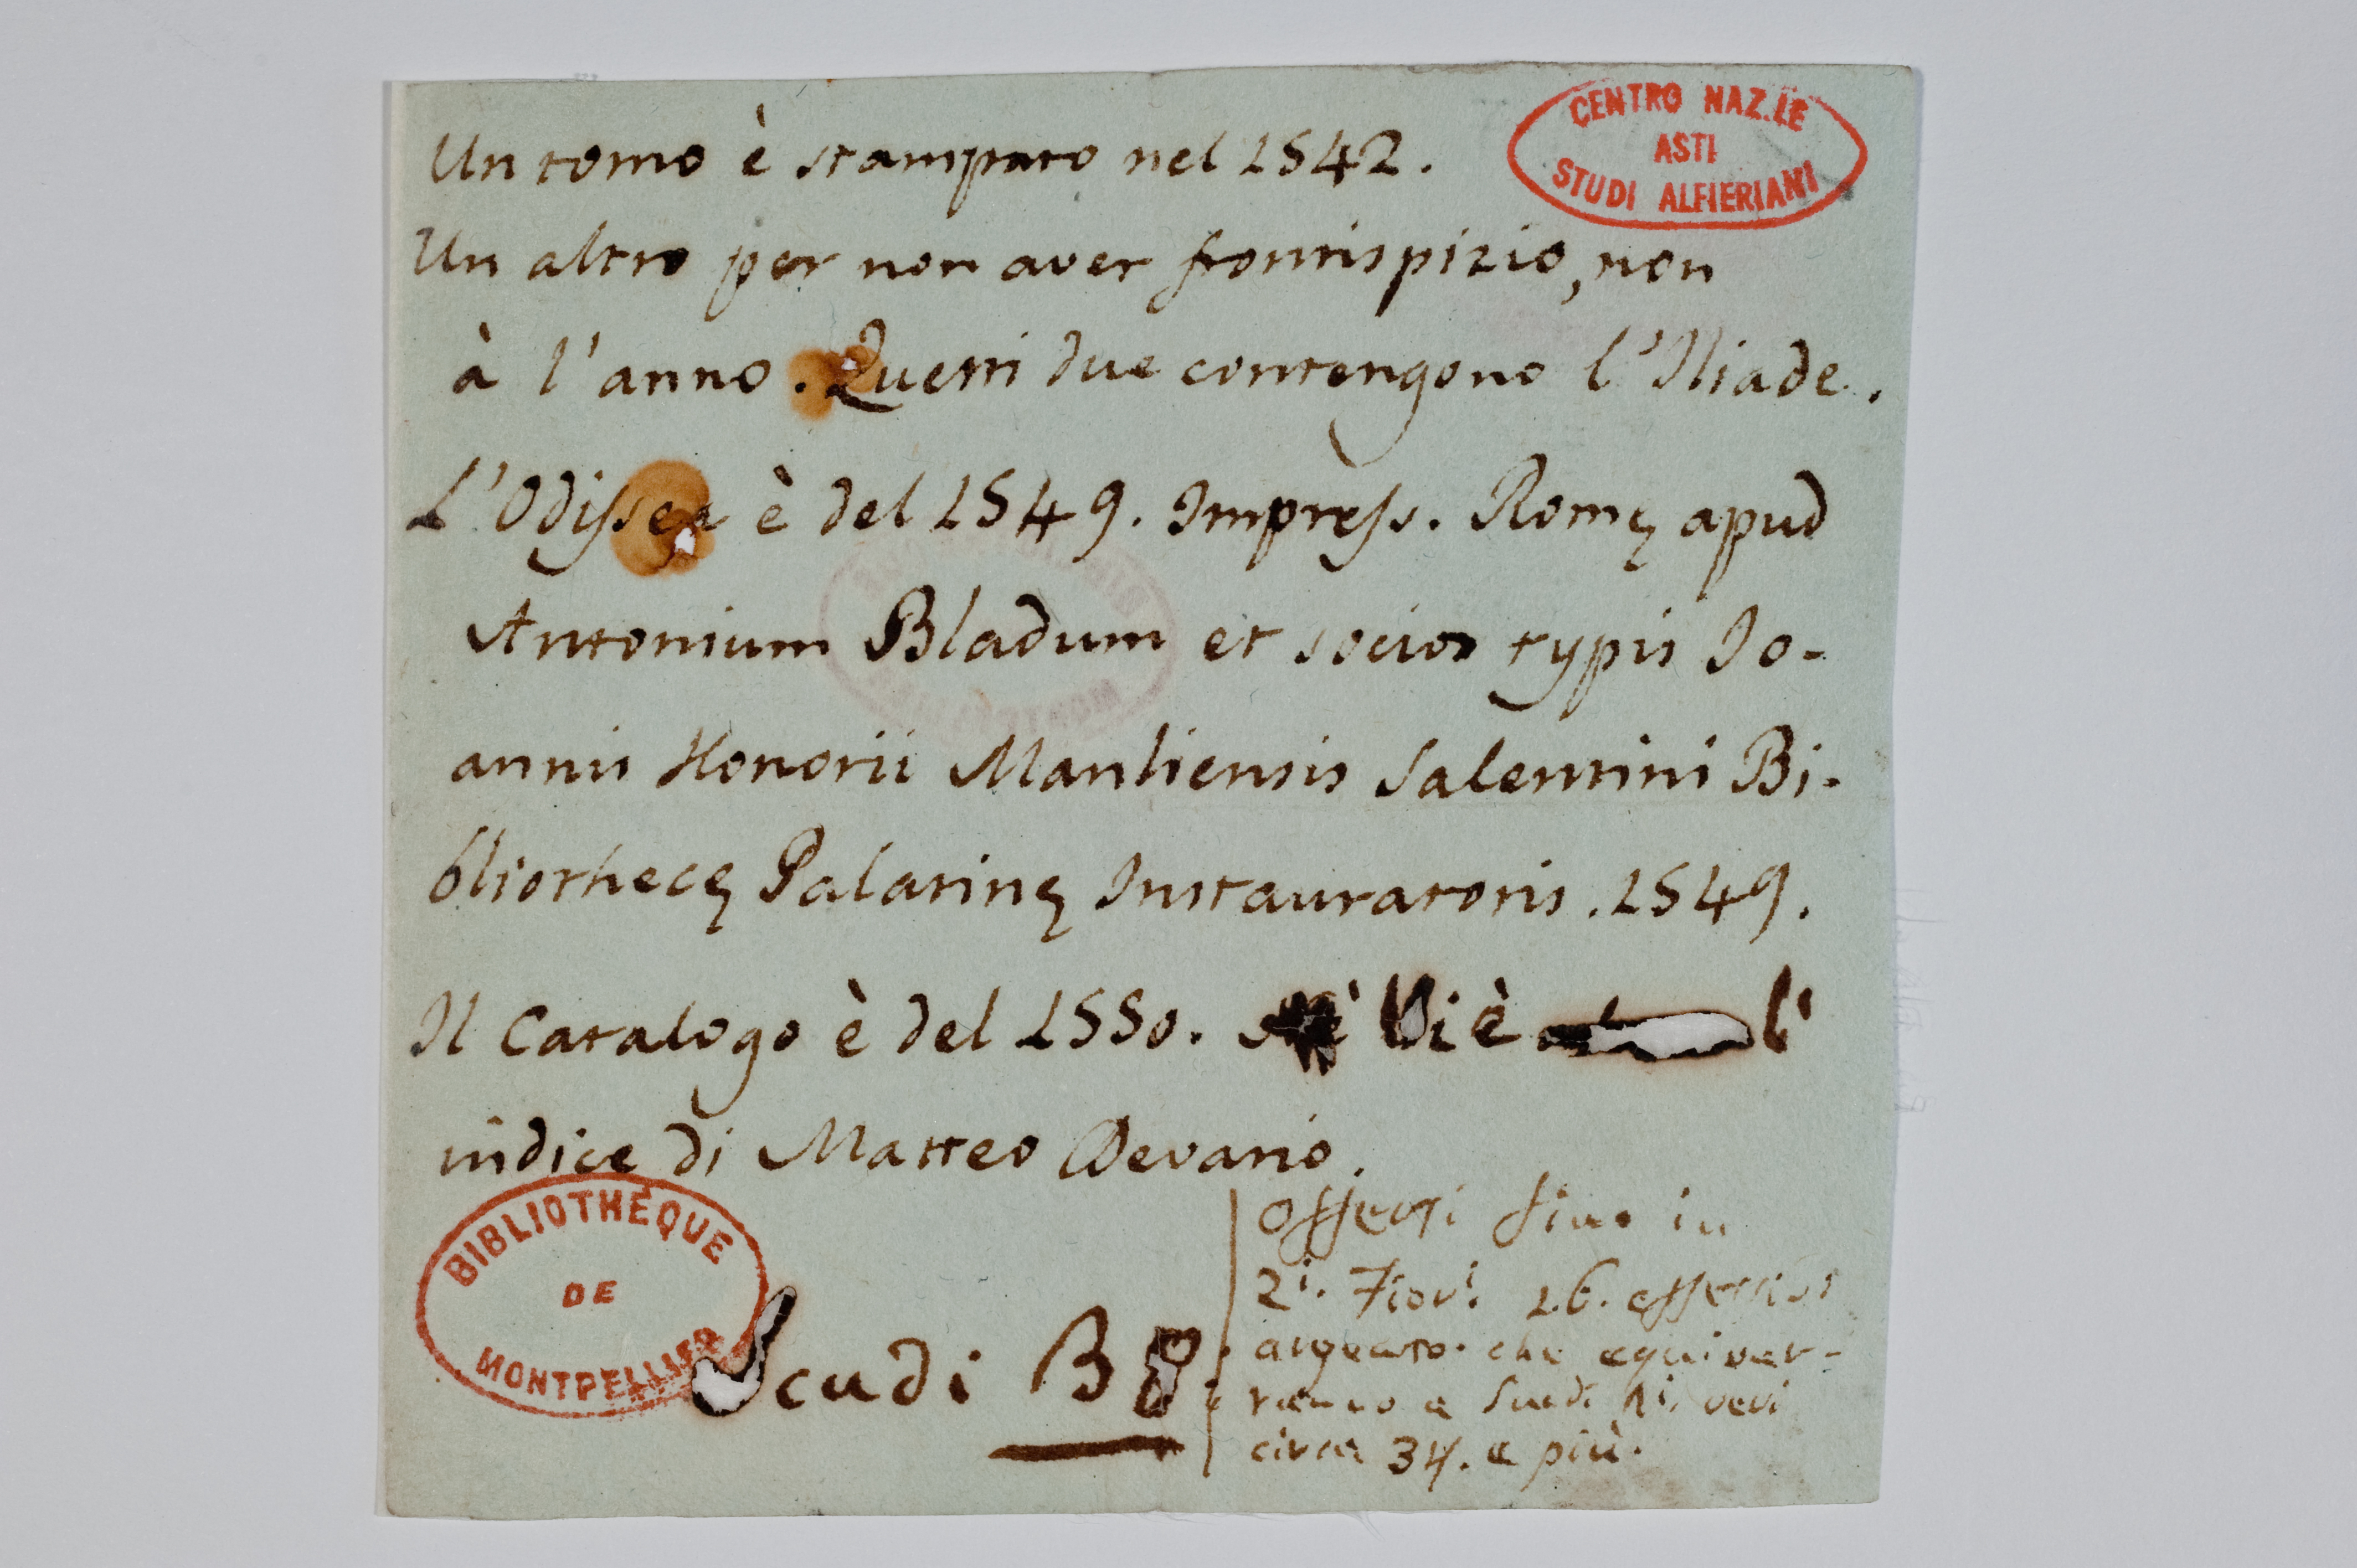 CENTRO NAZ.LE
ASTI
STUDI ALFIERIANI
Un tomo è stampato nel 1542.
Un altro per non aver frontispizio, non
à l'anno. Questi due contengono l'Iliade.
L'Odissea è del 1549. Impress. Romę apud
Antonium Bladum et socios typis Jo-
annis Honorii Manliensis Salentini Bi-
bliothecę Palatinę Instauratoris. 1549.
Il Catalogo è del 1550. Vi è l'
indice di Matteo Devario.
BIBLIOTHÉQUE
DE
MONTPELLIER
Scudi
offerti fino in
2i. Fiori 26. effettivi
argento. che equiver-
ranno a Scudi ni. veri
circa 34. e più.